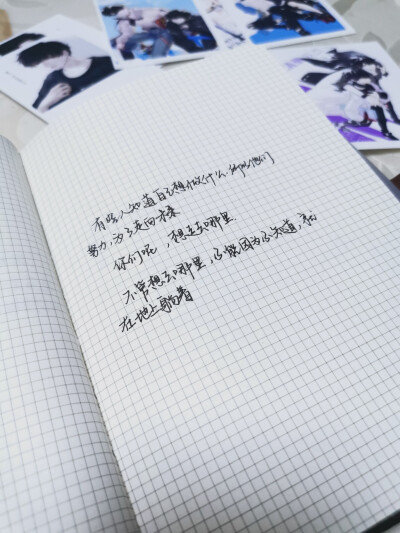 有些人知道自己想做什么,所以他们
努力,为了走向未来
你们呢,想去哪里
不管想去哪里,不能因为不知道,就
在地上躺着